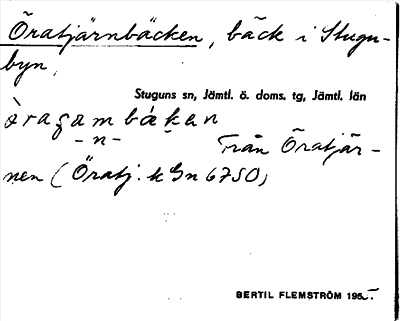 Öratjärnbäcken, bäck i Stugu-
byn,
Stuguns sn, Jämtl. ö. doms. tg, Jämtl. län
òragam bækan
- n -
Från Öratjär-
nen (Öratj: k Gn 6750)
BERTIL FLEMSTRÖM 195